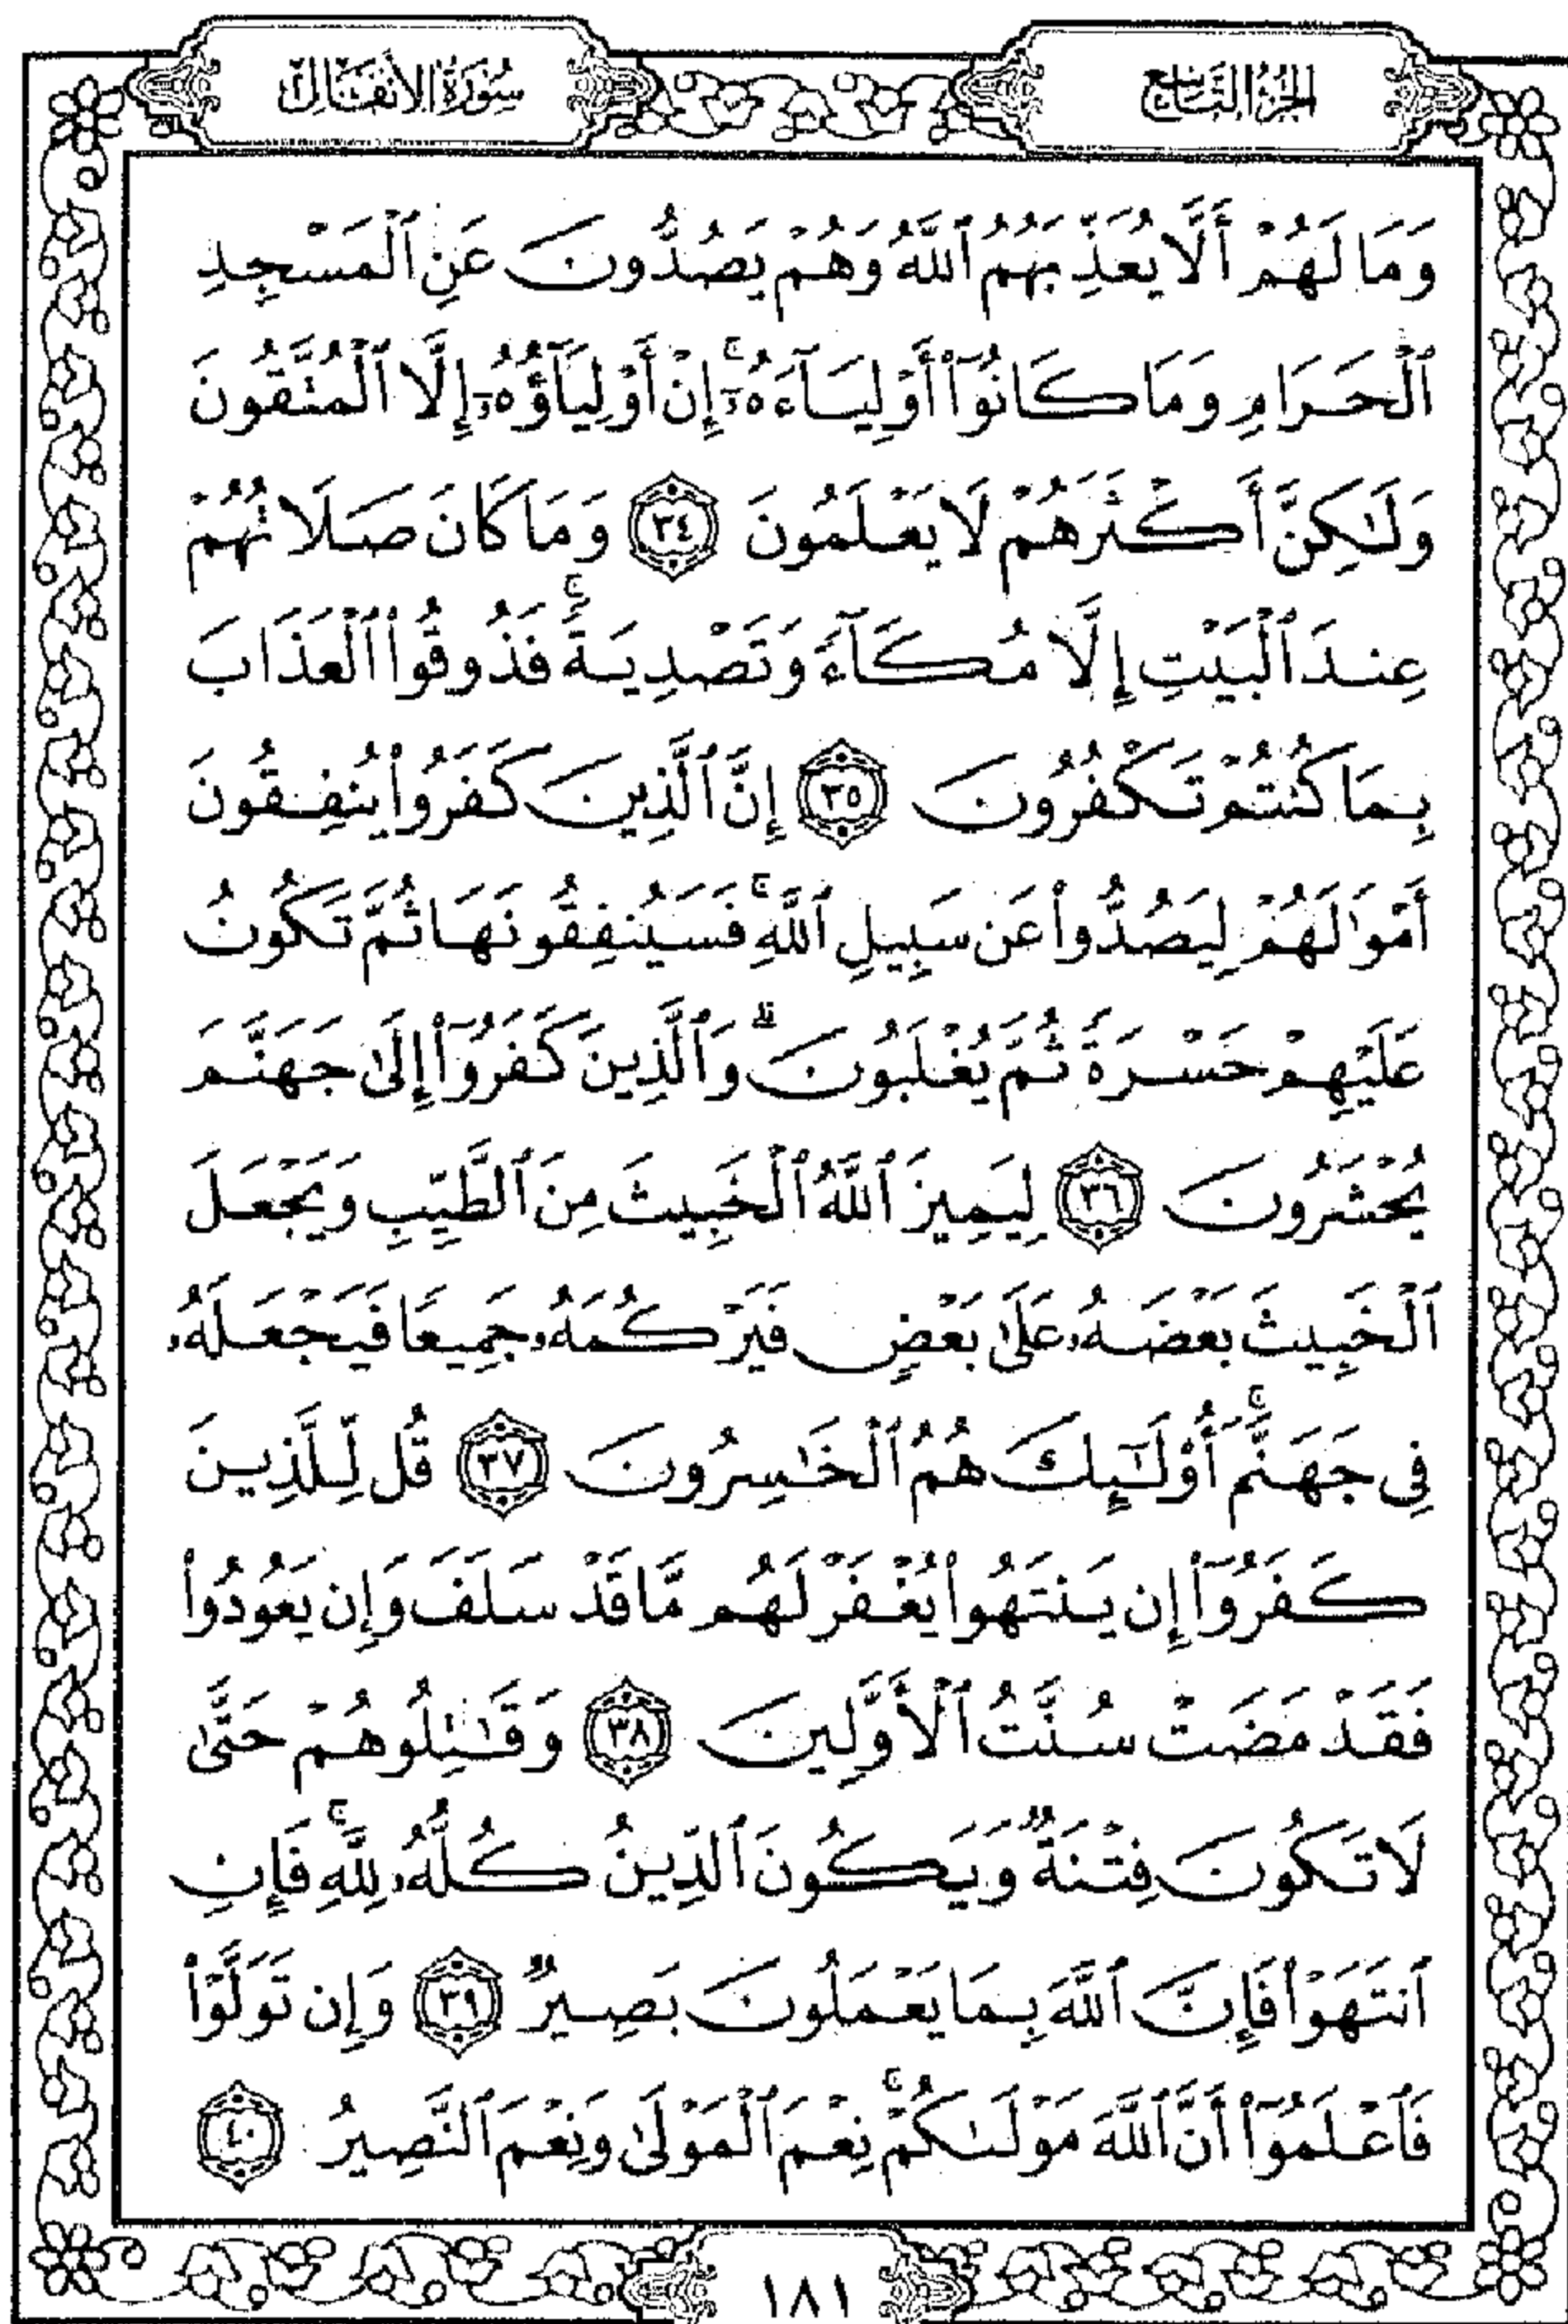 الجزء التاسع
سورة الأنفال
وَمَا لَهُمْ أَلَّا يُعَذِّبَهُمُ ٱللَّهُ وَهُمْ يَصُدُّونَ عَنِ ٱلْمَسْجِدِ
ٱلْحَرَامِ وَمَا كَانُوٓا۟ أَوْلِيَآءَهُۥٓ ۚ إِنْ أَوْلِيَآؤُهُۥٓ إِلَّا ٱلْمُتَّقُونَ
وَلَٰكِنَّ أَكْثَرَهُمْ لَا يَعْلَمُونَ ٣٤ وَمَا كَانَ صَلَاتُهُمْ
عِندَ ٱلْبَيْتِ إِلَّا مُكَآءً وَتَصْدِيَةً ۚ فَذُوقُوا۟ ٱلْعَذَابَ
بِمَا كُنتُمْ تَكْفُرُونَ ٣٥ إِنَّ ٱلَّذِينَ كَفَرُوا۟ يُنفِقُونَ
أَمْوَٰلَهُمْ لِيَصُدُّوا۟ عَن سَبِيلِ ٱللَّهِ ۚ فَسَيُنفِقُونَهَا ثُمَّ تَكُونُ
عَلَيْهِمْ حَسْرَةً ثُمَّ يُغْلَبُونَ ۗ وَٱلَّذِينَ كَفَرُوٓا۟ إِلَىٰ جَهَنَّمَ
يُحْشَرُونَ ٣٦ لِيَمِيزَ ٱللَّهُ ٱلْخَبِيثَ مِنَ ٱلطَّيِّبِ وَيَجْعَلَ
ٱلْخَبِيثَ بَعْضَهُۥ عَلَىٰ بَعْضٍ فَيَرْكُمَهُۥ جَمِيعًا فَيَجْعَلَهُۥ
فِى جَهَنَّمَ ۚ أُو۟لَٰٓئِكَ هُمُ ٱلْخَٰسِرُونَ ٣٧ قُل لِّلَّذِينَ
كَفَرُوٓا۟ إِن يَنتَهُوا۟ يُغْفَرْ لَهُم مَّا قَدْ سَلَفَ وَإِن يَعُودُوا۟
فَقَدْ مَضَتْ سُنَّتُ ٱلْأَوَّلِينَ ٣٨ وَقَٰتِلُوهُمْ حَتَّىٰ
لَا تَكُونَ فِتْنَةٌ وَيَكُونَ ٱلدِّينُ كُلُّهُۥ لِلَّهِ ۚ فَإِنِ
ٱنتَهَوْا۟ فَإِنَّ ٱللَّهَ بِمَا يَعْمَلُونَ بَصِيرٌ ٣٩ وَإِن تَوَلَّوْا۟
فَٱعْلَمُوٓا۟ أَنَّ ٱللَّهَ مَوْلَىٰكُمْ ۚ نِعْمَ ٱلْمَوْلَىٰ وَنِعْمَ ٱلنَّصِيرُ ٤٠
١٨١